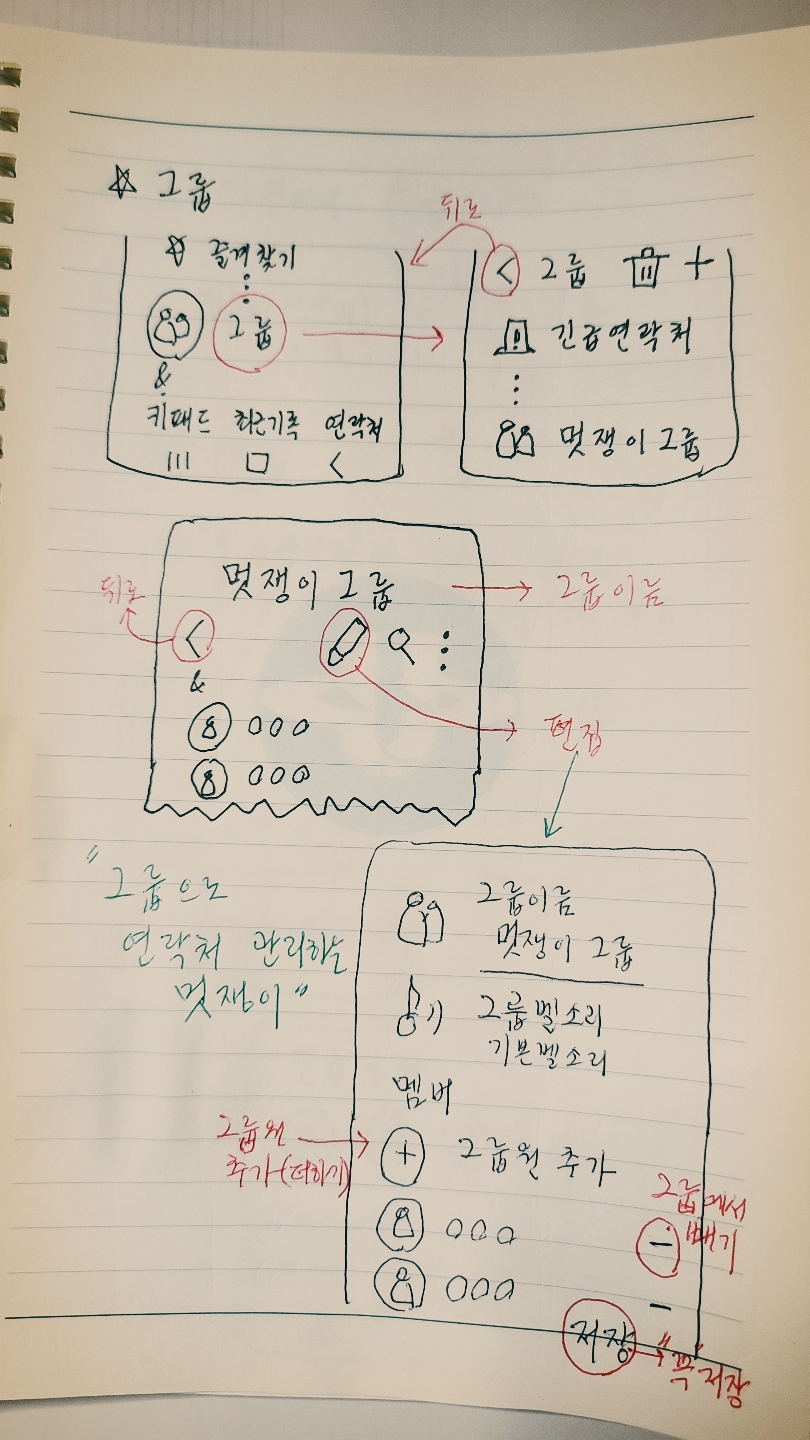 ☆ 그룹
뒤로
☆ 즐겨찾기
그룹
&
키패드 최근기록 연락처
||| □ <
< 그룹 +
긴급연락처
멋쟁이 그룹
멋쟁이 그룹
그룹이름
뒤로
<
&
000
000
편집
"그룹으로
연락처 관리하는
멋쟁이"
그룹이름
멋쟁이 그룹
그룹벨소리
기본벨소리
멤버
그룹원
추가(더하기)
+ 그룹원 추가
000
그룹에서
빼기
−
000
−
저장
"꾹" 저장